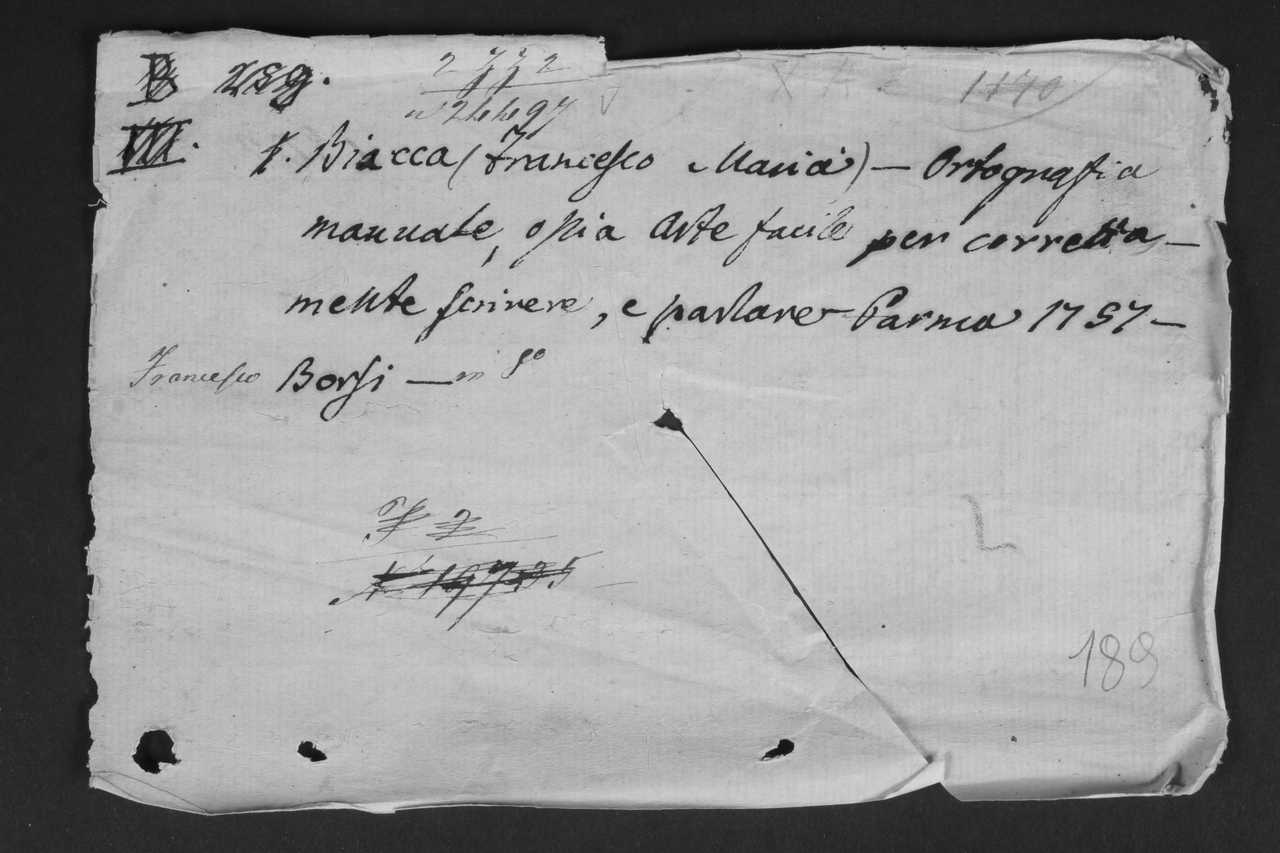 B 259.
2 7 3 2
n° 24497
1170
VII. 1. Biacca (Francesco Maria) — Ortografia
manuale, ossia Arte facile per corretta—
mente scrivere, e parlare — Parma 1757 —
Francesco Borsi — in 8°
189